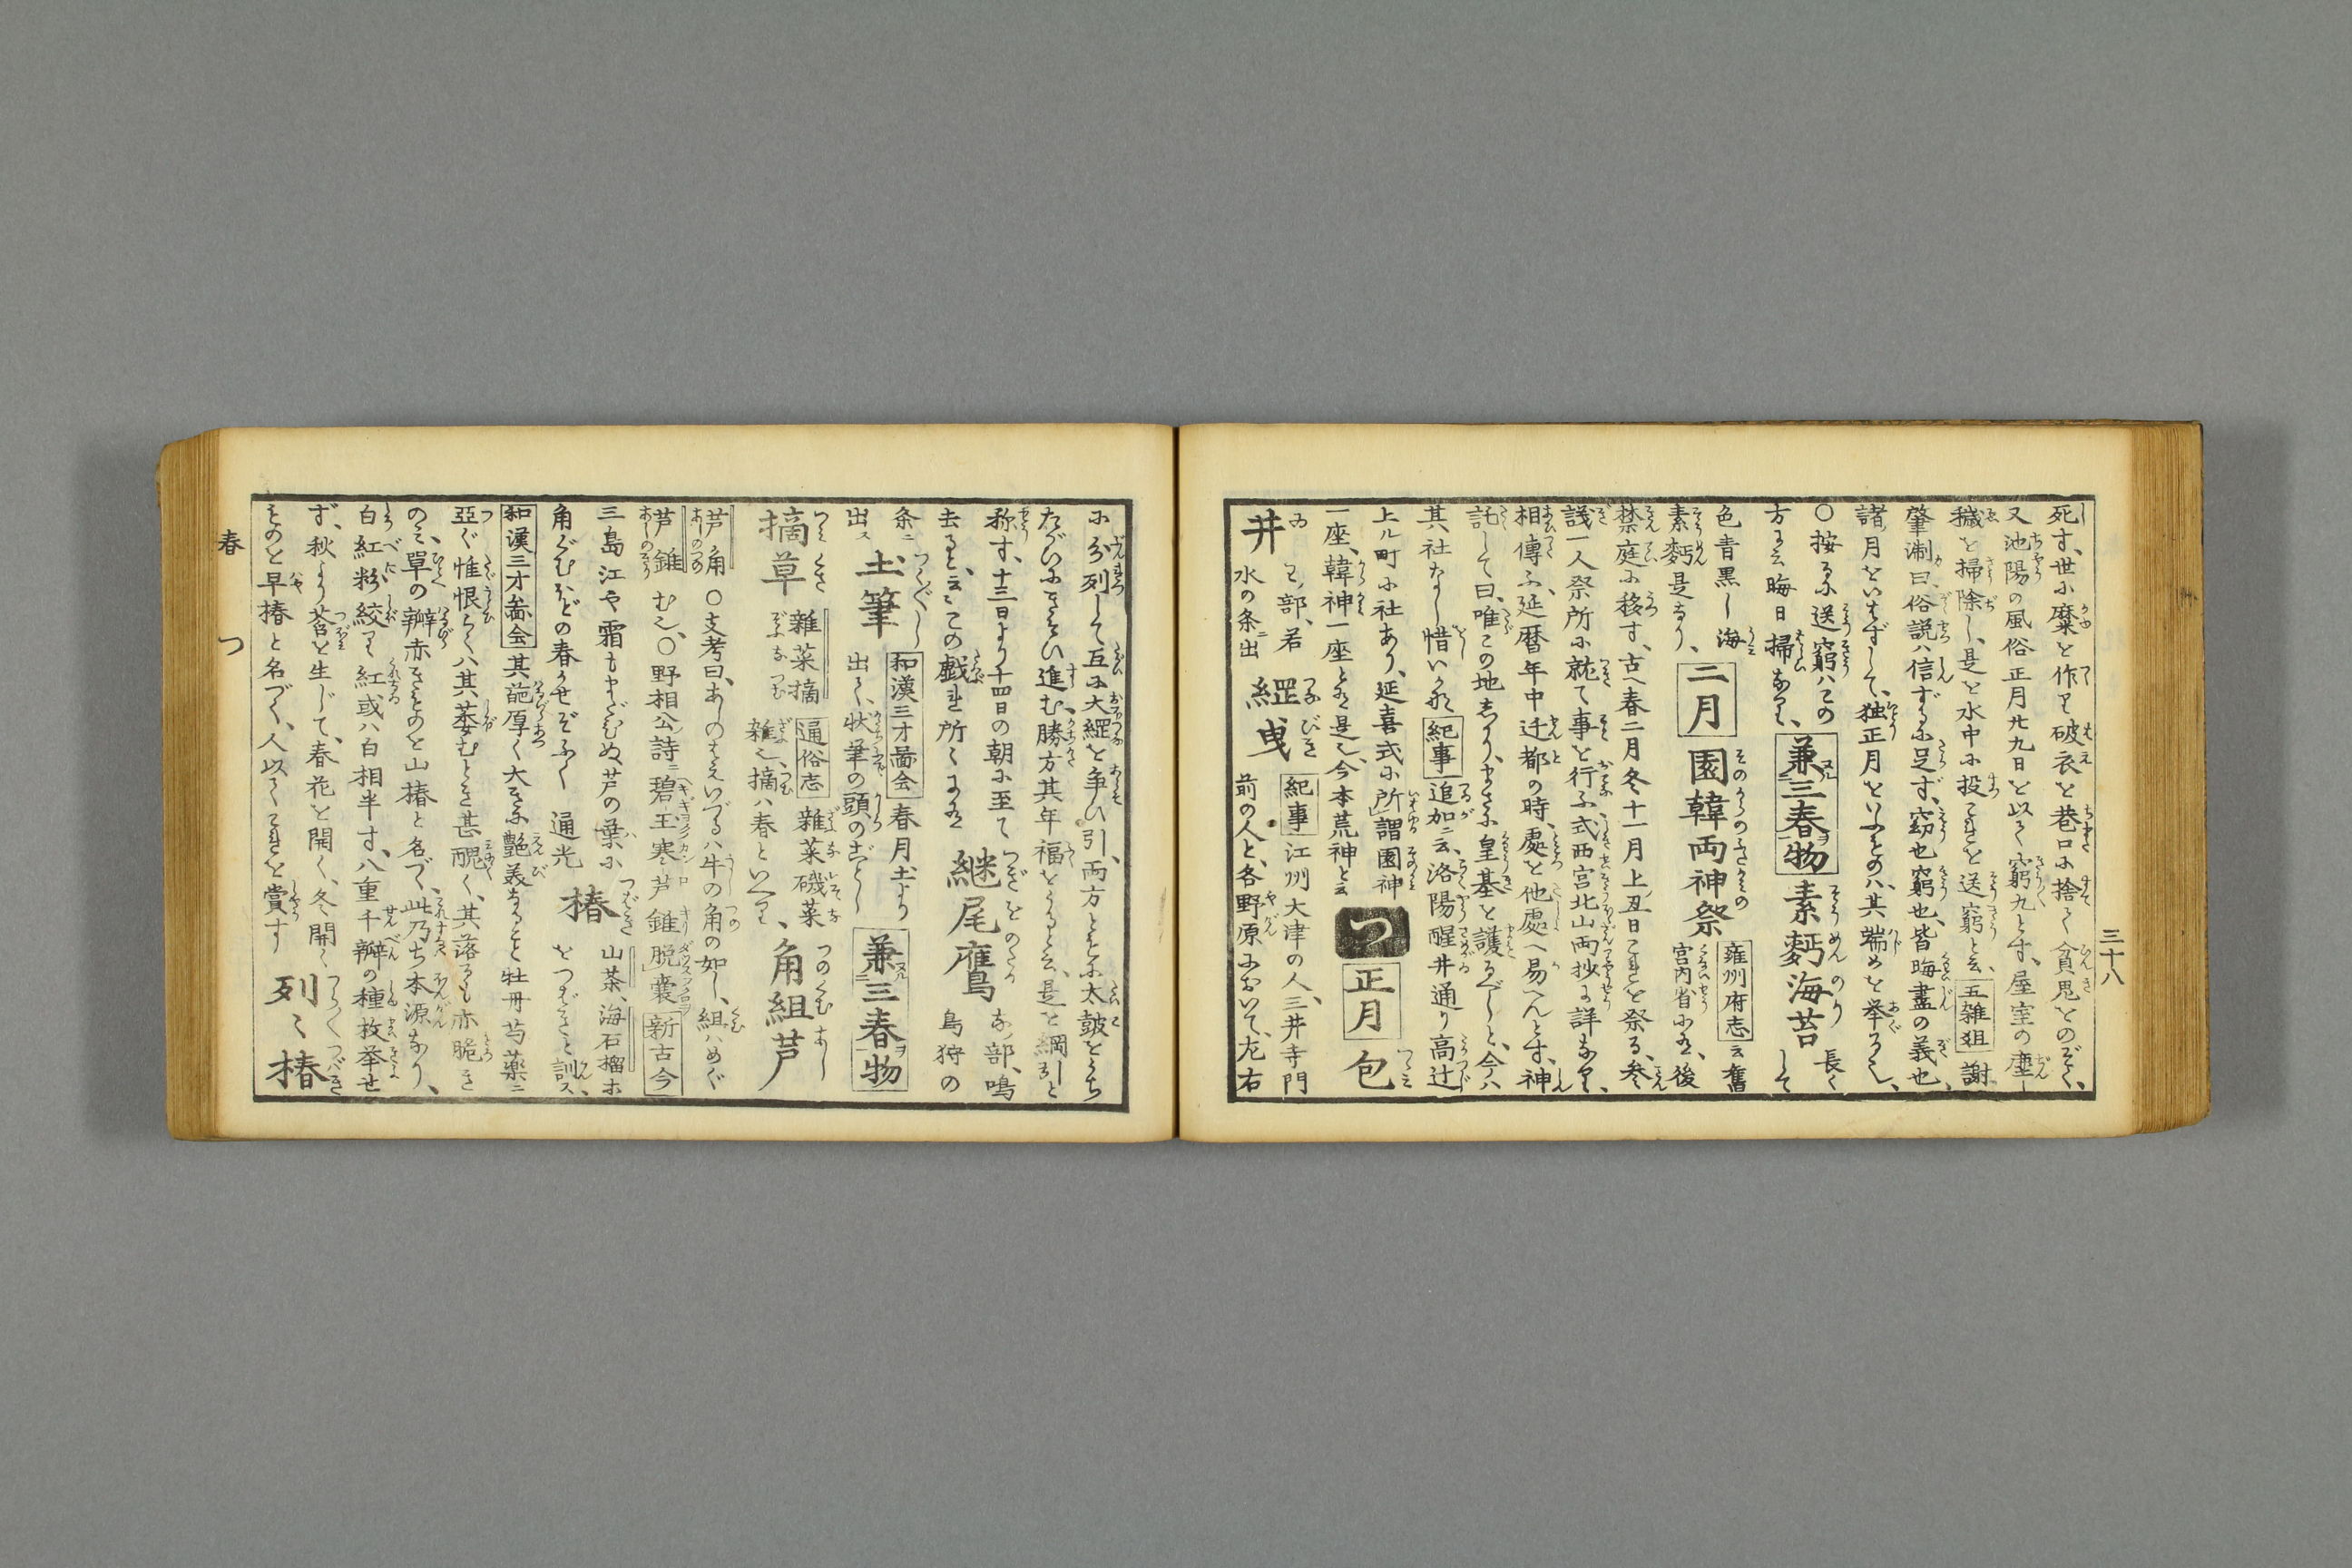 三十八
死す、世に糜を作り破衣を巷口に捨て貧鬼をのぞく、
又池陽の風俗正月廿九日を以て窮九とす、屋室の塵
穢を掃除し、是を水中に投これを送窮と云、五雑俎 謝
肇淛曰、俗説ハ信ずるに足ず、窈也窮也、皆晦盡の義也、
諸月をいはずして、独正月をいふものハ、其端めを挙るん、
○按るに送窮ハこの
方に云晦日掃なり、
兼三春物
素麪海苔
長くして
色青黒し海
素麪是なり、
二月
園韓両神祭
雍州府志 云舊
宮内省にあり、後
禁庭に移す、古へ春二月冬十一月上ノ丑日これを祭る、参
議一人祭所に就て事を行ふ、式西宮北山両抄に詳なり、
相傳ふ、延暦年中迁都の時、處を他處へ易へんとす、神
託して曰、唯この地あり、まさに皇基を護るべしと、今ハ
其社なし惜いかな 紀事 追加ニ云、洛陽醒井通り高辻
上ル町に社あり、延喜式に所謂園神
一座、韓神一座とは是也、今本荒神と云
つ
正月
包
井
ヰノ部、若
水の条ニ出
綱曳
紀事 江州大津の人、三井寺門
前の人と、各野原において、左右
に分列して互に大綱を争ひ引、両方ともに太皷をうち
たがいにきそひ進む、勝方其年福をうると云、是を綱引と
称す、十三日より十四日の朝に至て
去ると云、この戯れ所々にあり
継尾鷹
な部、鳴
鳥狩の
条ニ
出ス
土筆
和漢三才圖会 春月土より
出く、状筆の頭のごとし
兼三春物
摘草
雑菜摘
通俗志 雑菜磯菜
雑也、摘ハ春といへり、
角組芦
芦角
芦錐
○支考曰、あしのもえいづるハ牛の角の如し、組ハめぐ
む也、○野相公ノ詩ニ碧玉寒芦錐脱嚢 新古今
三島江や霜もまだひぬ芦の葉に
角ぐむほどの春かぜぞふく 通光
椿
山茶、海石榴ホ
をつばきと訓ス、
和漢三才圖会 其葩厚く大きに艶美なること牡丹芍薬ニ
亞ぐ惟恨らくハ其、萎むとき甚醜く、其落るも亦脆き
のミ、單の瓣赤きものを山椿と名づく、此乃ち本源なり、
白紅粉絞り紅或ハ白相半す、八重千瓣の種枚挙せ
ず、秋より莟を生じて、春花を開く、冬開く
ものを早椿と名づく、人以てこれを賞す
列々椿
春
つ